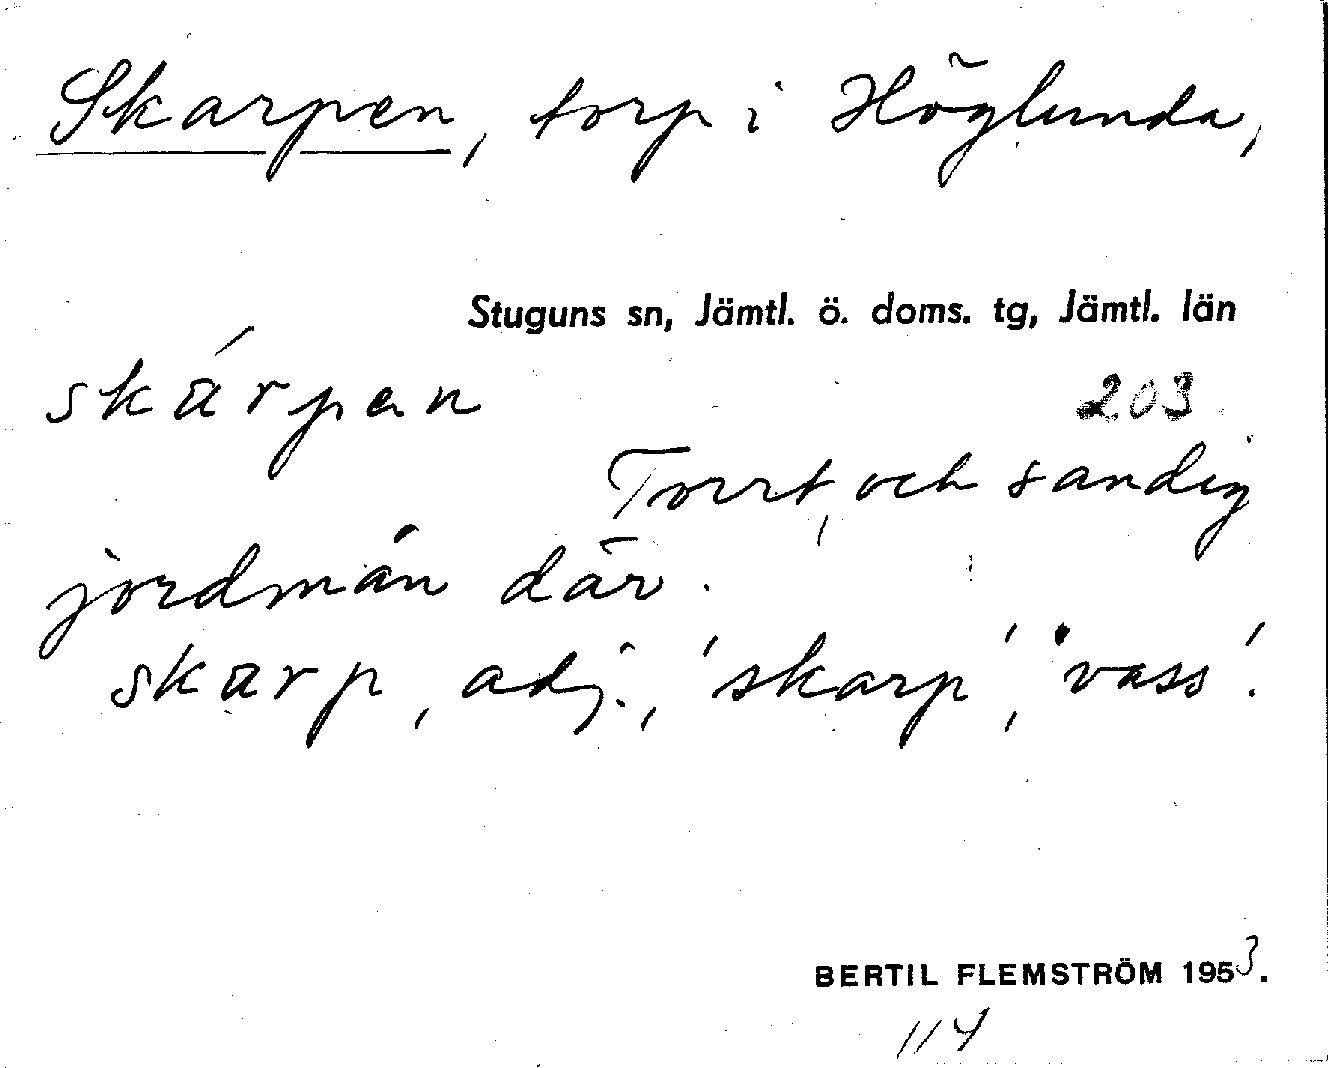 Skarpen, torp i Höglunda,
Stuguns sn, Jämtl. ö. doms. tg, Jämtl. län
skárpen
203
Torrt, och sandig
jordmån där.
skarp, adj., 'skarp', 'vass'.
BERTIL FLEMSTRÖM 1953.
114